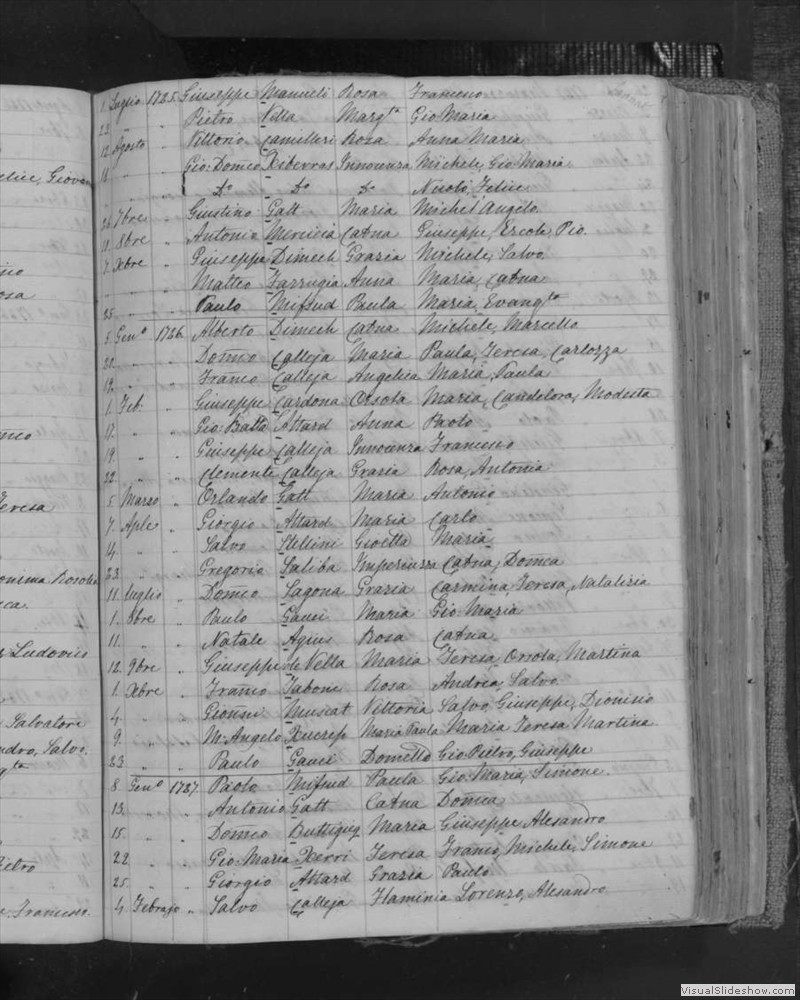 elice, Giova
nio
osa
nco
Teresa
onima Rosolia
eca
e Ludovico
Salvatore
ndro, Salvo.
gta
Pietro
e. Francesco.
1. Luglio 1725. Giuseppe Manueli Rosa Francesco
22 " " Pietro Vella Margta Gio Maria
12 Agosto " Vittorio Camilleri Rosa Anna Maria
18 " " Gio: Domco Ribevras Innocenza Michele, Gio Maria
" " Do Do Do Nicolò, Felice
26 7bre " Giustino Gatt Maria Michel'Angelo
11. 8bre " Antonio Merciecà Catna Giuseppe, Ercole, Pio.
7. Xbre " Giuseppe Dimech Grazia Michele, Salvo
" " " Matteo Farrugia Anna Maria, Catna
25 " " Paulo Mifsud Paula Maria, Evangta
5 Geno 1726 Alberto Dimech Catna Michele, Marcello
20. " " Domco Calleja Maria Paula, Teresa, Carlozza
12. " " Franco Calleja Angelica Maria, Paula
1. Feb. " Giuseppe Cardona Orsola Maria, Candelora, Modesta
17. " " Gio: Batta Attard Anna Paolo
19. " " Giuseppe Calleja Innocenza Francesco
22. " " Clemente Calleja Grazia Rosa, Antonia
5 Marzo " Orlando Gatt Maria Antonio
7 Aple " Giorgio Attard Maria Carlo
14. " " Salvo Stellini Gioetta Maria
23 " " Gregorio Saliba Imperiuzza Catna, Domca
11. Luglio " Domco Lagona Grazia Carmina, Teresa, Natalizia
1. 8bre " Paulo Gauci Maria Gio Maria
11. " " Natale Agius Rosa Catna
12. 9bre " Giuseppe de Vella Maria Teresa, Orsola, Martina
1. Xbre " Franco Tabone Rosa Andrea, Salvo
4. " " Gionni Muscat Vittoria Salvo, Giuseppe, Dionisio
9. " " M: Angelo Xucrep Maria Paula Maria Teresa Martina
23 " " Paulo Gauci Domella Gio: Pietro, Giuseppe
8 Geno 1727. Paolo Mifsud Paula Gio: Maria, Simone.
13. " " Antonio Gatt Catna Domca
15. " " Domco Buttigieg Maria Giuseppe Alesandro
22 " " Gio: Maria Xerri Teresa Franco, Michele, Simone
25. " " Giorgio Attard Grazia Paulo
4. Febrajo " Salvo Calleja Flaminia Lorenzo, Alesandro
VisualSlideshow.com